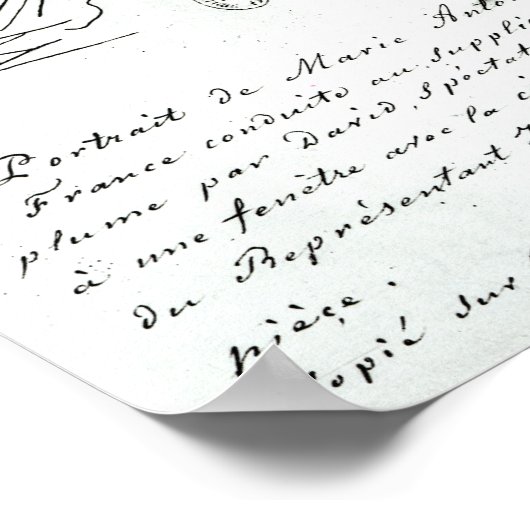 Portrait de Marie Anto
France conduite au suppli
plume par David, Spectat
à une fenêtre avec la c
du Représentant
pièce.
copié sur